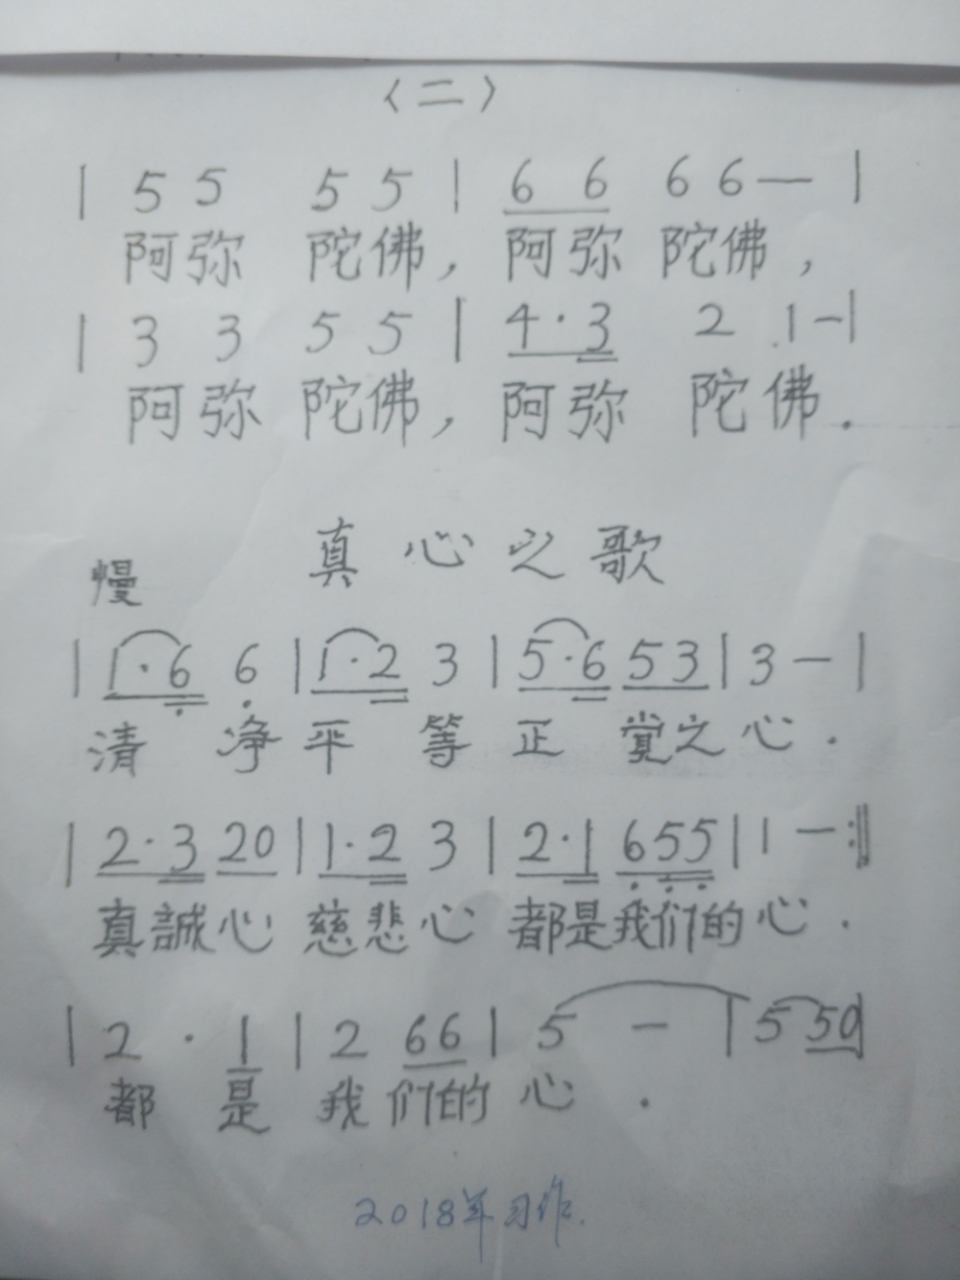 〈二〉
| 5 5 5 5 | 6 6 6 6 — |
阿弥 陀佛，阿弥 陀佛，
| 3 3 5 5 | 4·3 2 1 — |
阿弥 陀佛，阿弥 陀佛.
真心之歌
慢
| 1·6 6 | 1·2 3 | 5·6 53 | 3 — |
清 净 平 等 正 覚之心.
| 2·3 20 | 1·2 3 | 2·1 655 | 1 — :‖
真誠心 慈悲心 都是我们的心.
| 2 · 1 | 2 66 | 5 — | 5 50 |
都 是 我们的心.
2018年习作.